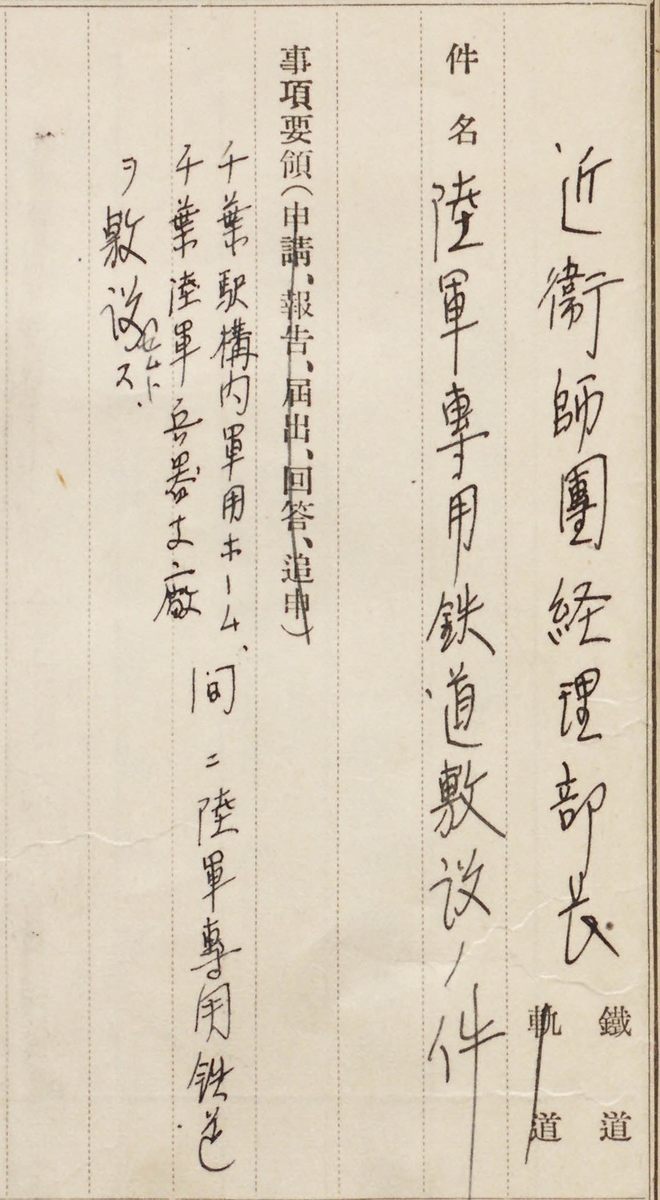 鐵道
軌道
近衞師團経理部長
件名 陸軍専用鉄道敷設ノ件
事項要領(申請、報告、届出、回答、追申)
千葉駅構内軍用ホーム、
千葉陸軍兵器支廠
間ニ陸軍専用鉄道
ヲ敷設セムトス、